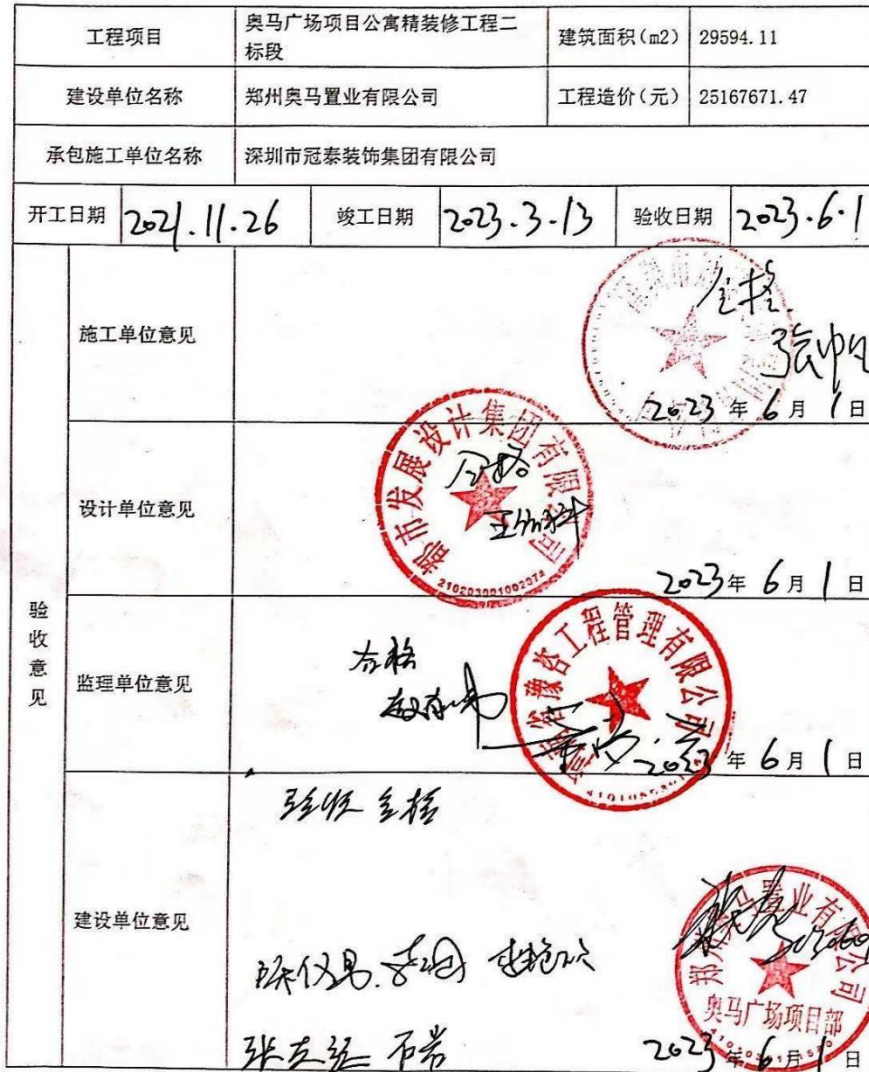 工程项目
奥马广场项目公寓精装修工程二
标段
建筑面积(m2)
29594.11
建设单位名称
郑州奥马置业有限公司
工程造价(元)
25167671.47
承包施工单位名称
深圳市冠泰装饰集团有限公司
开工日期
2021.11.26
竣工日期
2023.3.13
验收日期
2023.6.1
验收意见
施工单位意见
合格.
2023年6月1日
设计单位意见
都市发展设计集团有限公司
合格
210203001002074
2023年6月1日
监理单位意见
合格
豫咨工程管理有限公司
2023年6月1日
建设单位意见
验收合格
郑州奥马置业有限公司
奥马广场项目部
石岩
2023年6月1日